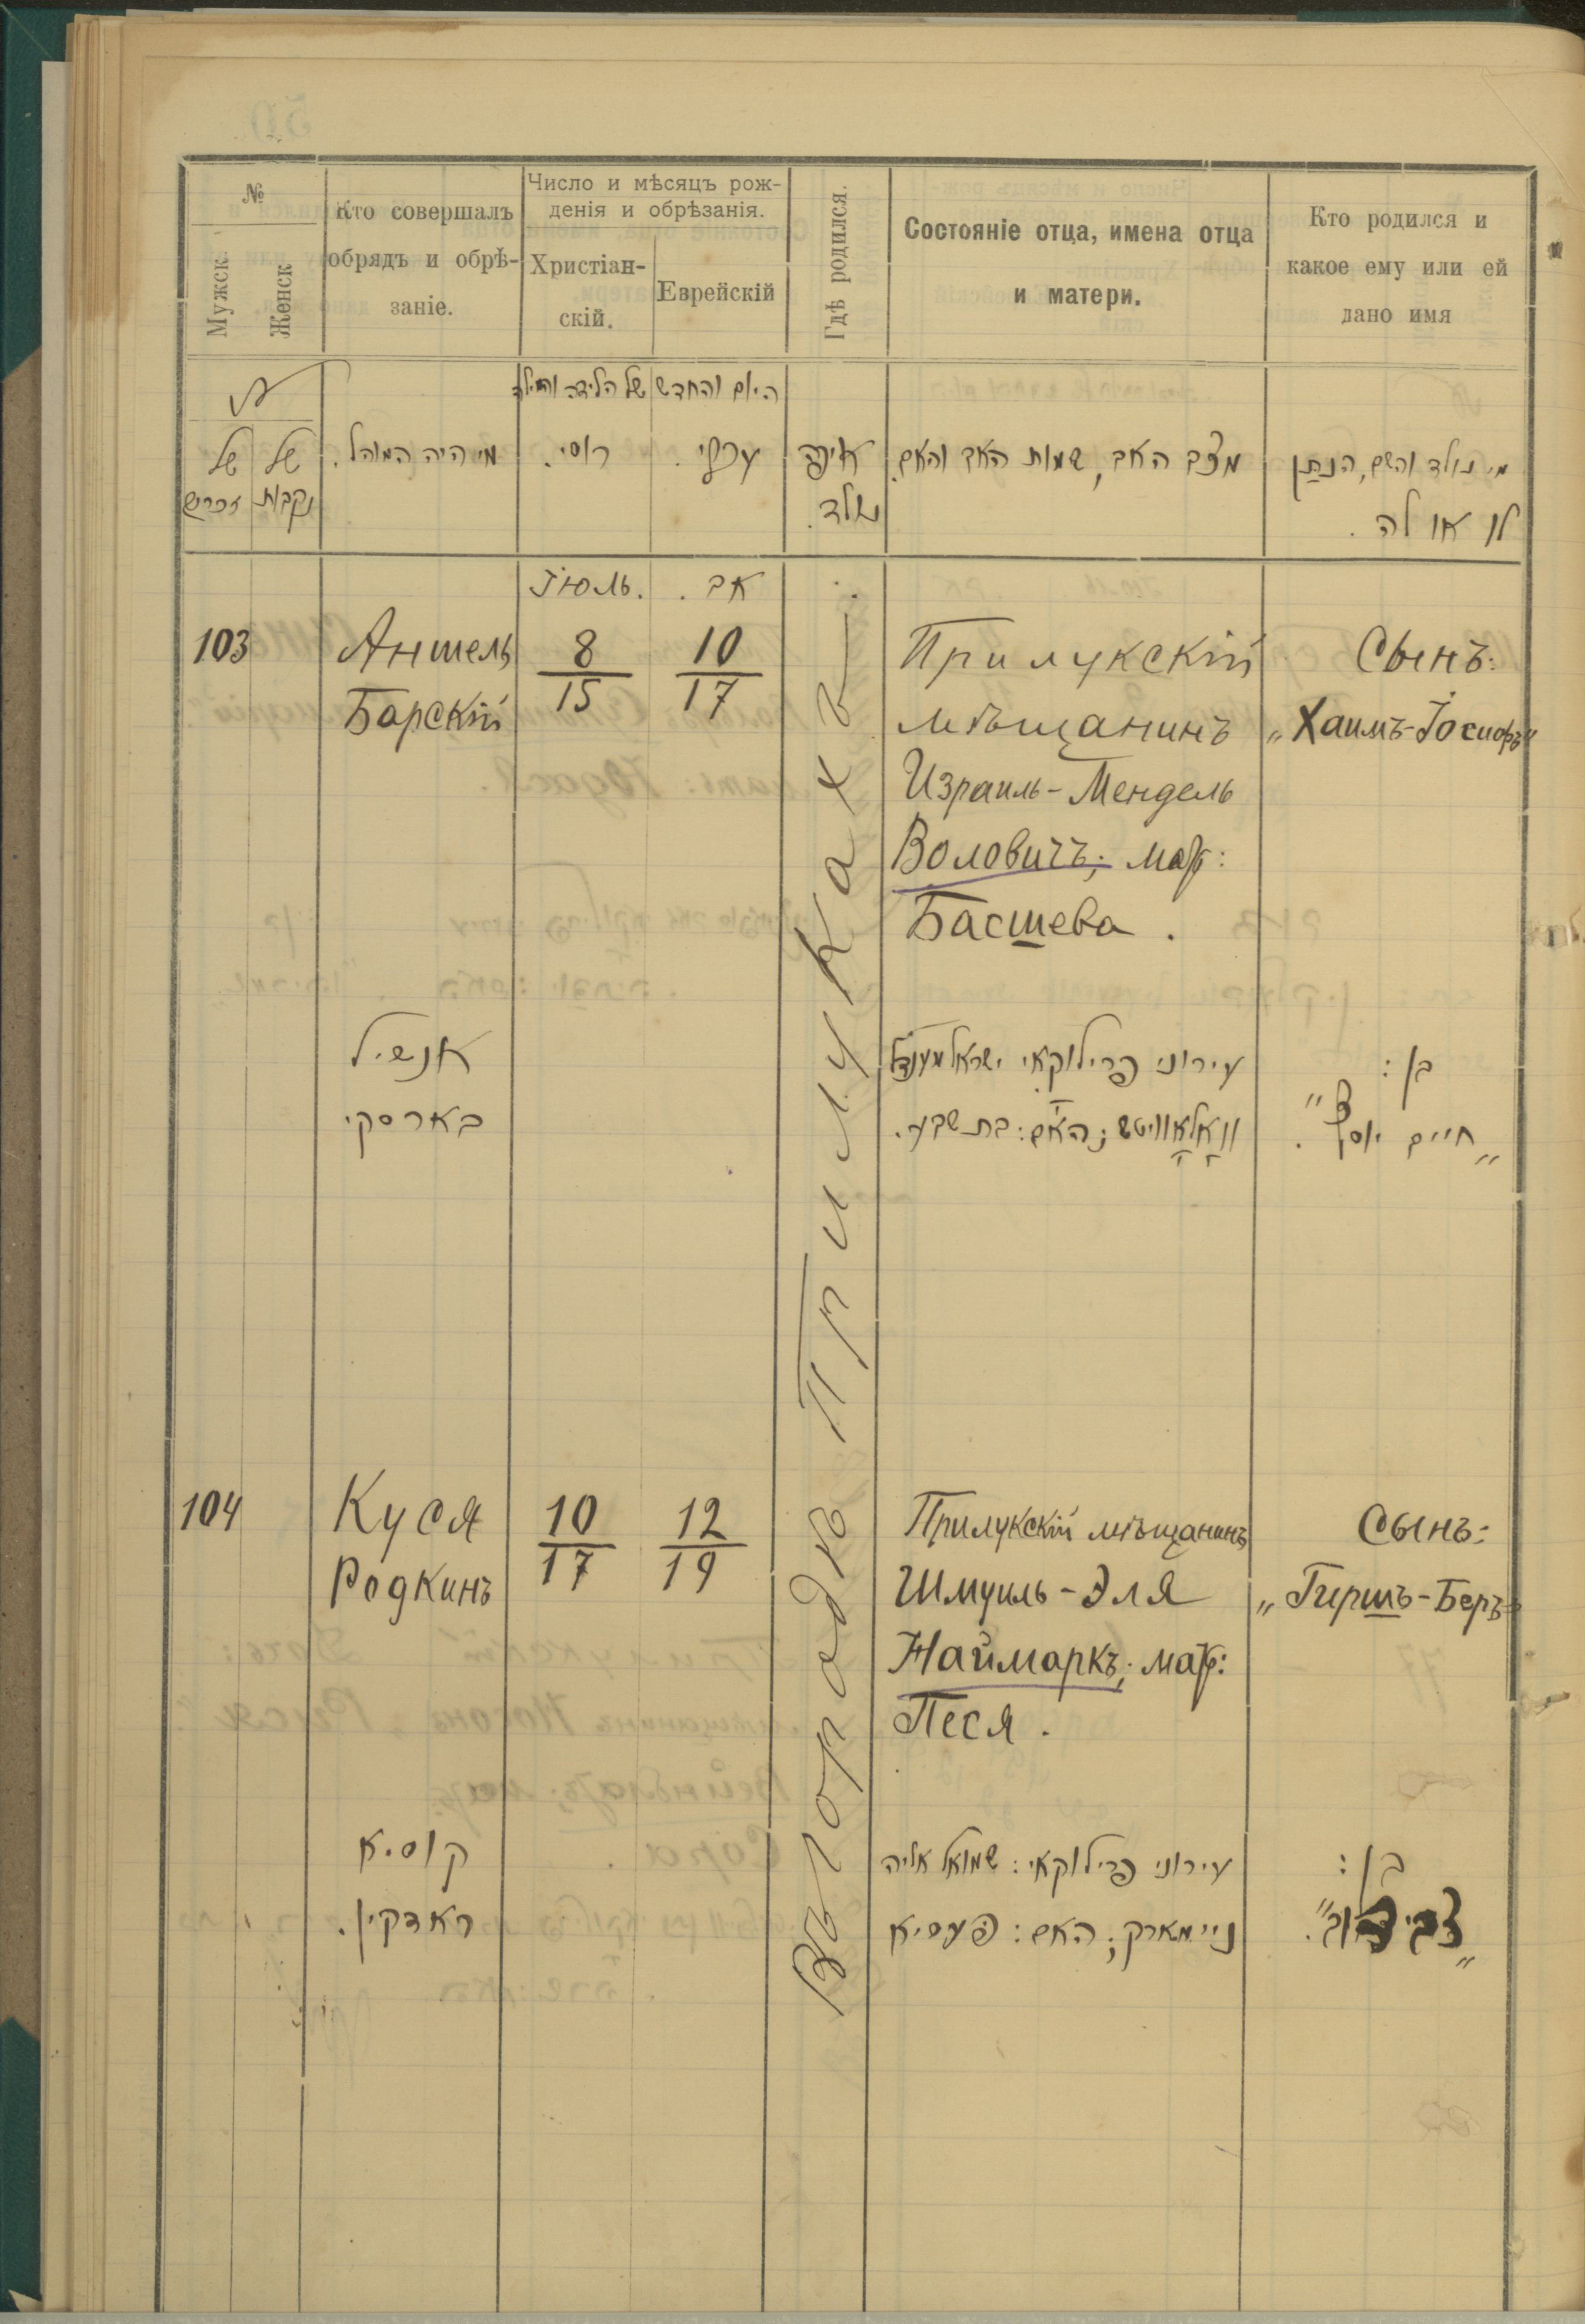 №
Мужск.
Женск
Кто совершалъ
обрядъ и обрѣ-
заніе.
Число и мѣсяцъ рож-
денія и обрѣзанія.
Христіан-
скій.
Еврейскій
Гдѣ родился.
Состояніе отца, имена отца
и матери.
Кто родился и
какое ему или ей
дано имя
№
של זכרים
של נקבות
מי היה המוהל.
היום והחדש של הלידה והמילה
רוסי.
עברי.
איפה
נולד.
מצב האב, שמות האב והאם.
מי נולד והשם, הנתן
לו או לה.
Іюль.
אב.
103
Аншель
Барскій
8
15
10
17
Прилукскій
мѣщанинъ
Израиль-Мендель
Воловичъ; мат:
Басшева.
Сынъ:
„Хаимъ-Іосифъ"
אנשיל
בארסקי
עירוני פרילוקאי ישראל מענדל
וואלאוויטש; האם: בת שבע.
בן:
„חיים יוסף".
Въ городѣ Прилукахъ
104
Куся
Родкинъ
10
17
12
19
Прилукскій мѣщанинъ
Шмуиль-Эля
Наймаркъ; мат:
Песя.
Сынъ:
„Гиршъ-Беръ"
קוסיא
ראדקין.
עירוני פרילוקאי: שמואל אליה
ניימארק; האם: פעסיא
בן:
„צבי דוב".